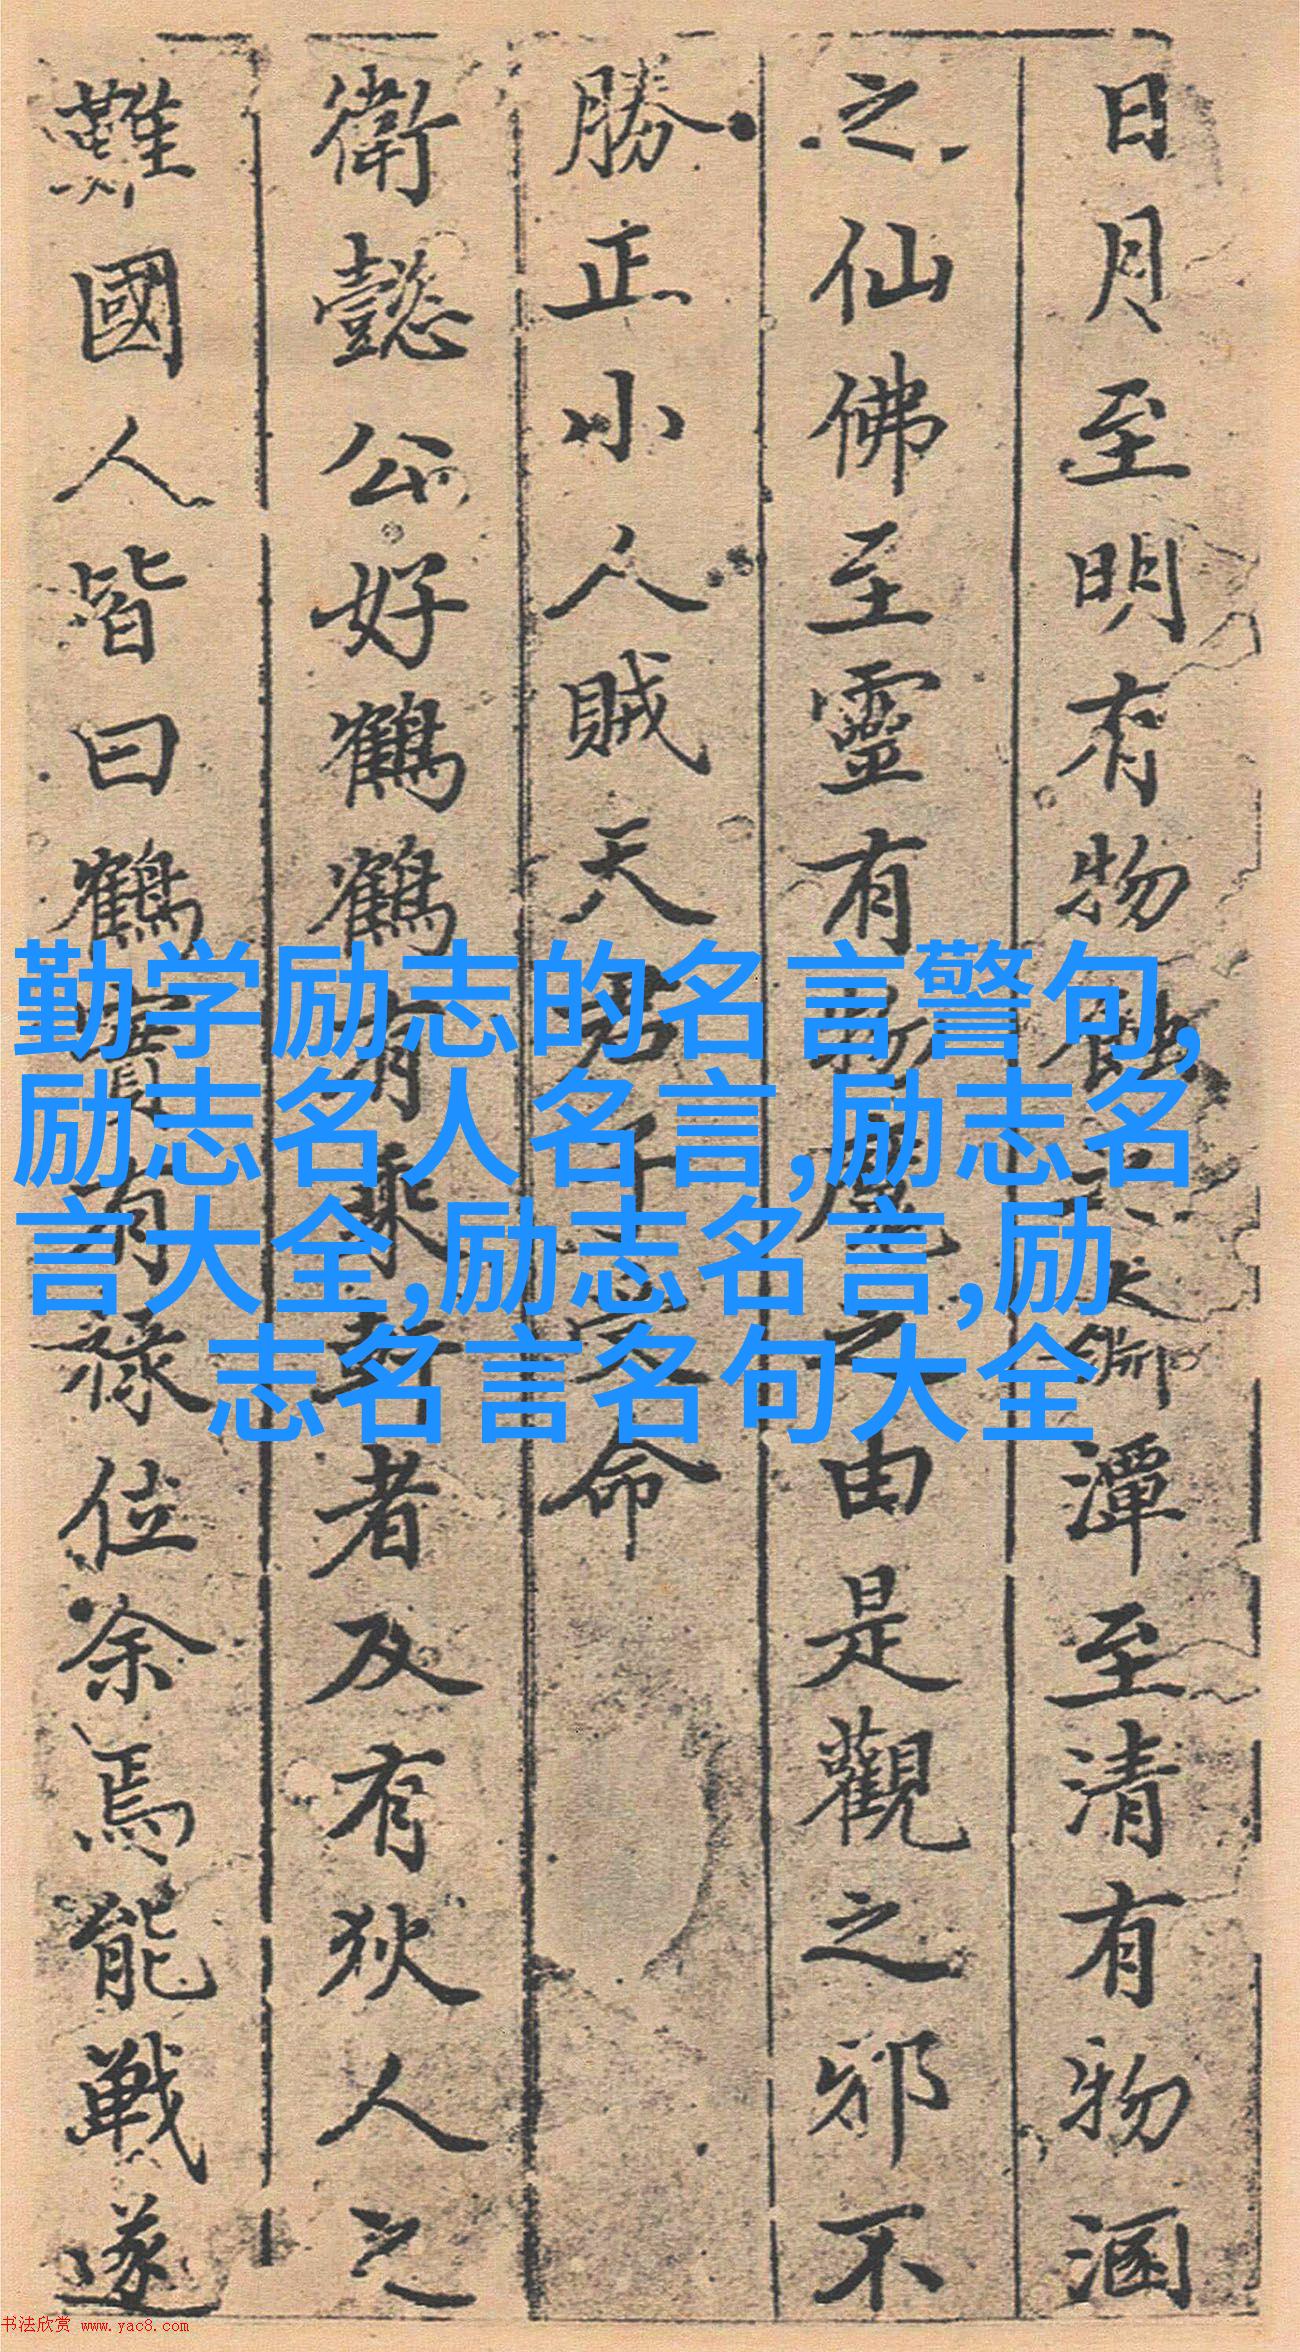 日月至明有物蝕之大 潭至清有物涵
之仙佛至靈有物魔之由是觀之邪不
勝正小人賊天君子受命
衛懿公好鶴鶴有乘軒者及有狄人之
難國人皆曰鶴實有祿位余焉能戰遂
勤学励志的名言警句,
励志名人名言,励志名
言大全,励志名言,励
志名言名句大全
书法欣赏 www.yac8.com